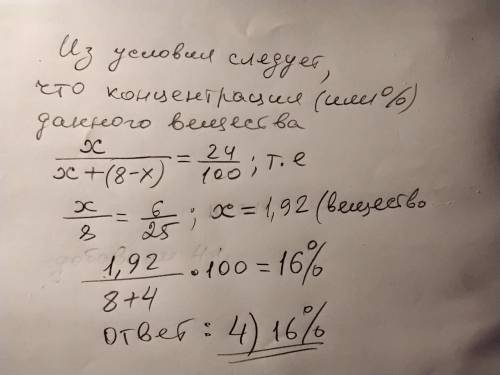 Из условия следует,
что концентрация (или %)
данного вещества
x / x+(8-x) = 24 / 100 ; т.е
x / 8 = 6 / 25 ; x = 1,92 (вещество
1,92 / 8+4 • 100 = 16%
ответ : 4) 16%